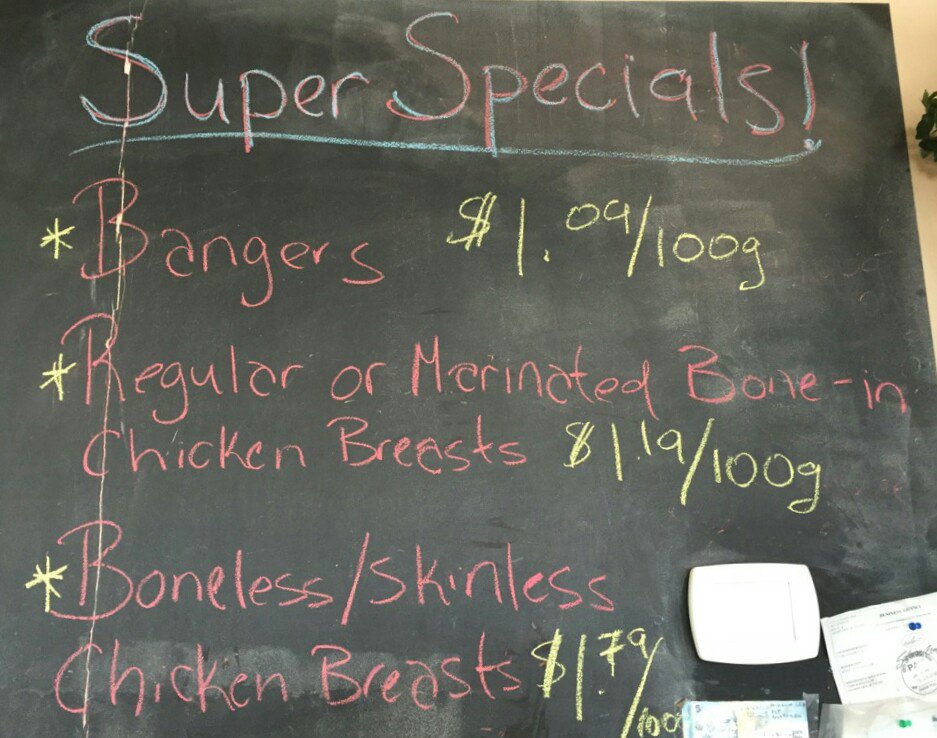 Super Specials!
* Bangers $1.09/100g
* Regular or Marinated Bone-in
Chicken Breasts $1.19/100g
* Boneless/Skinless
Chicken Breasts $1.79/
100
BUSINESS LICENCE